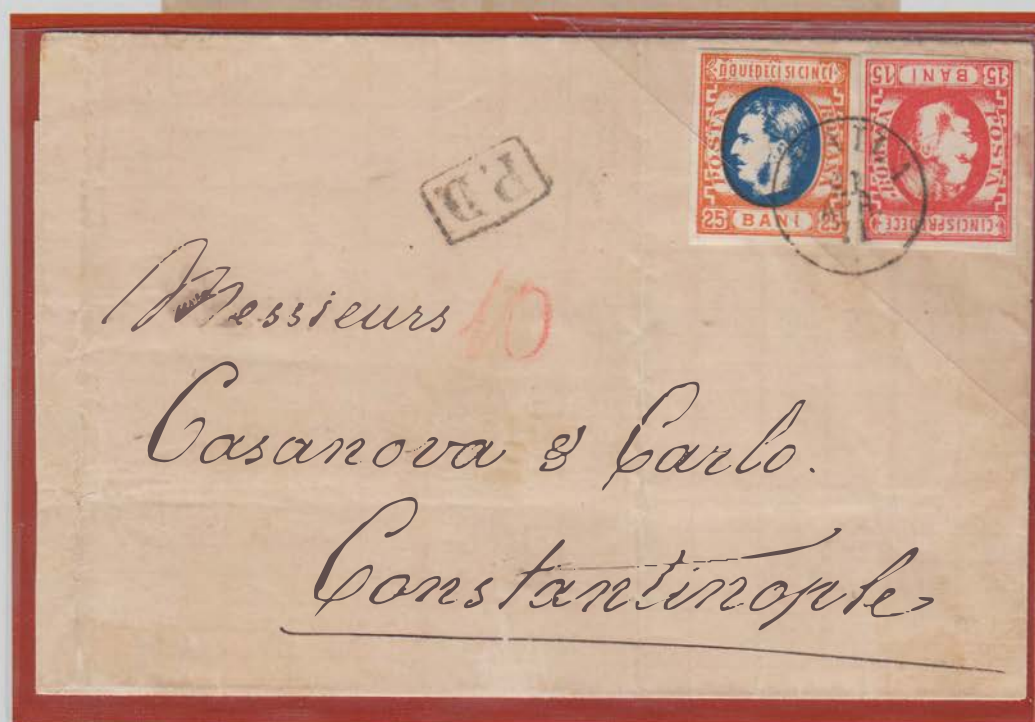 DOUEDECI SI CINCI
POSTA ROMANA
25 BANI 25
15 BANI 15
POSTA ROMANA
CINCISPREDECE
P.D.
40
Messieurs
Casanova & Carlo.
Constantinople